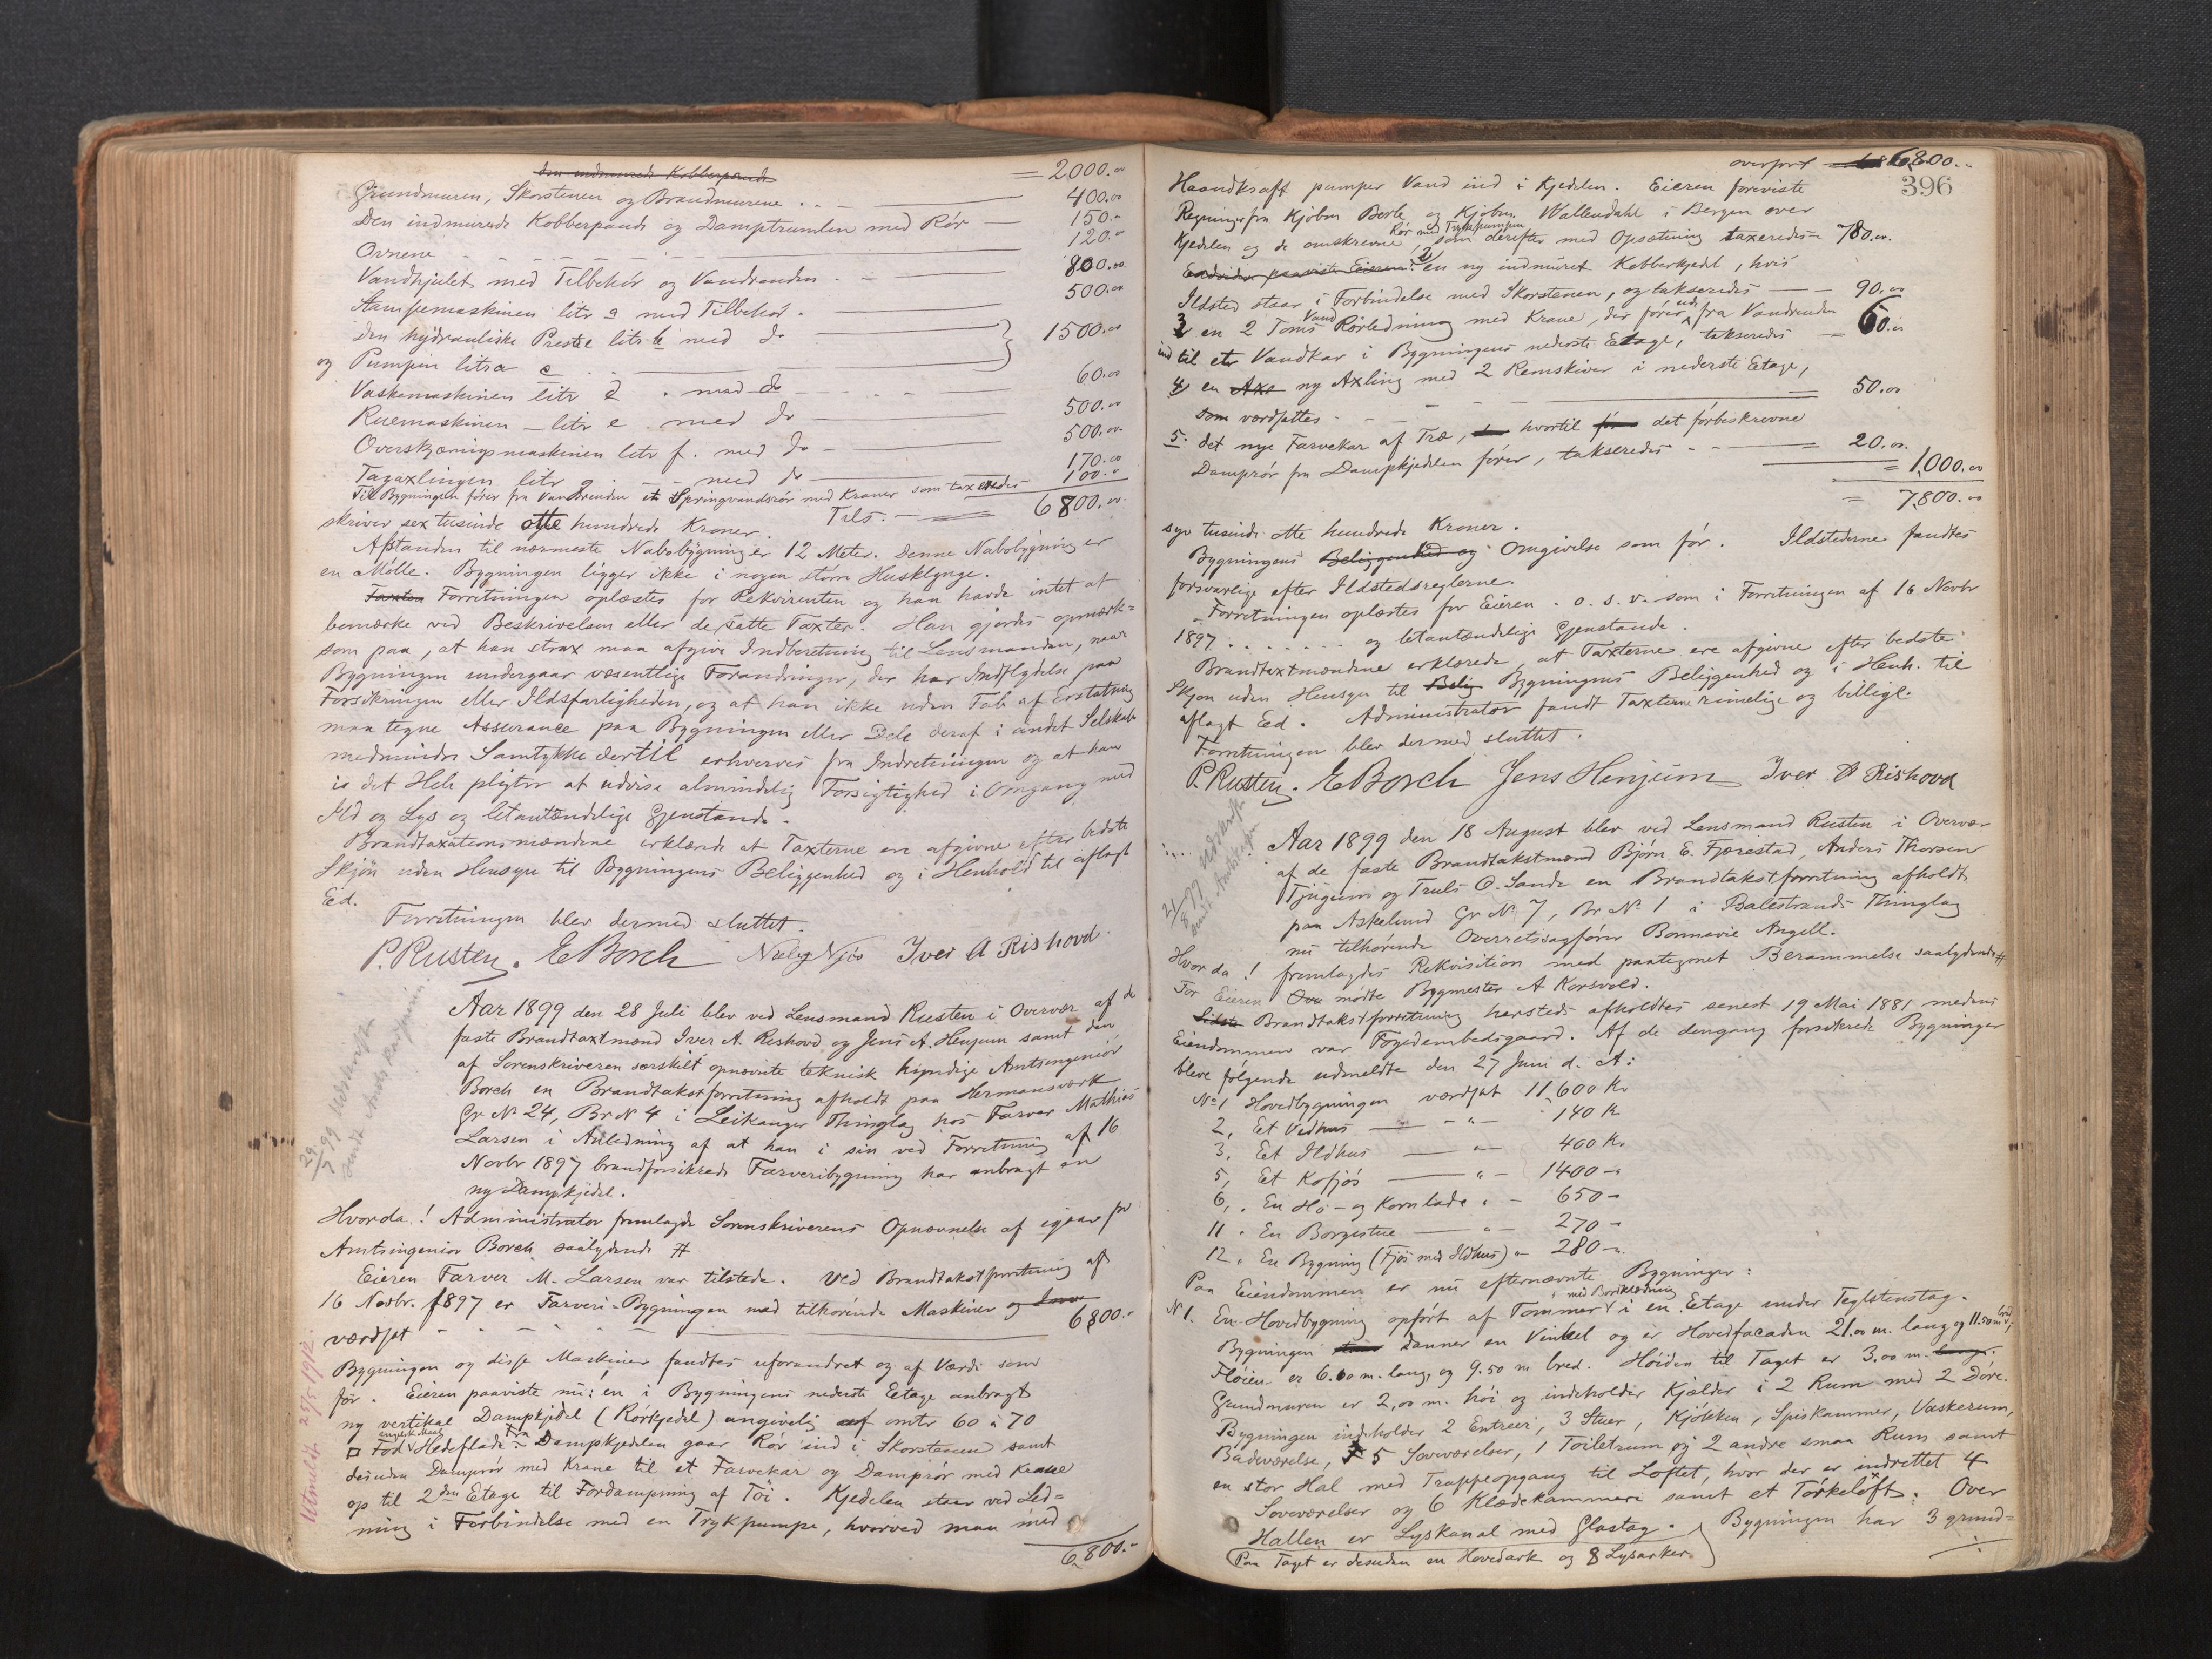 den indmurede Kobberpande = 2000.00
Grundmuren, Skorstenen og Brandmurene 400.00
Den indmurede Kobberpande og Damptrumlen med Rör 150.-
Ovnene 120.00
Vandhjulet med Tilbehör og Vandrenden 800.00
Stampemaskinen litr a med Tilbehör 500.00
Den hydrauliske Presse litr. b med do
og Pumpen litra c } 1500.00
Vaskemaskinen litr d med do 60.00
Ruemaskinen litr e med do 500.00
Overskjæringsmaskinen litr f. med do 500.00
Tagaxlingen litr g med do 170.00
Til Bygningen förer fra Vandrenden et Springvandsrör med Kraner som taxeredes 100.00
Tils. 6800.00
skriver sex tusinde otte hundrede Kroner.
Afstanden til nærmeste Nabobygning er 12 Meter. Denne Nabobygning er
en Mölle. Bygningen ligger ikke i nogen större Husklynge.
Taxten Forretningen oplæstes for Rekvirenten og han havde intet at
bemærke ved Beskrivelsen eller de satte Taxter. Han gjordes opmærk=
som paa, at han strax maa afgive Indberetning til Lensmanden, naar
Bygningen undergaar væsentlige Forandringer, der har Indflydelse paa
Forsikringen eller Ildsfarligheden, og at han ikke uden Tab af Erstatning
maa tegne Assurance paa Bygningen eller Dele deraf i andet Selskab
medmindre Samtykke dertil erhverves fra Indretningen og at han
i det Hele pligter at udvise almindelig Forsigtighed i Omgang med
Ild og Lys og letantændelige Gjenstande.
Brandtaxationsmændene erklærede at Taxterne ere afgivne efter bedste
Skjön uden Hensyn til Bygningens Beliggenhed og i Henhold til aflagt
Ed.
Forretningen blev dermed sluttet.
P. Rusten. E Borch Njös Iver A Rishovd.
29/7 99 Udskrift
sendt Amtskontoret
Aar 1899 den 28 Juli blev ved Lensmand Rusten i Overvær af de
faste Brandtaxtmænd Iver A. Rishovd og Jens A. Henjum samt den
af Sorenskriveren særskilt opnævnte teknisk kyndige Amtsingeniör
Borch en Brandtakstforretning afholdt paa Hermansværk
Gr No 24, Br No 4 i Leikanger Thinglag hos Farver Mathias
Larsen i Anledning af at han i sin ved Forretning af 16
Novbr 1897 brandforsikrede Farveribygning har anbragt en
ny Dampkjedel.
Hvorda! Administrator fremlagde Sorenskriverens Opnævnelse af igaar for
Amtsingeniör Borch saalydende #
Eieren Farver M. Larsen var tilstede. Ved Brandtakstforretning af
16 Novbr. 1897 er Farveri-Bygningen med tilhörende Maskiner og
værdsat 6,800.-
Bygningen og disse Maskiner fandtes uforandret og af Værdi som
för. Eieren paaviste nu: en i Bygningens nederste Etage anbragt
ny vertikal Dampkjedel (Rörkjedel) angivelig af omtr 60 à 70
□ Fod engelsk Maal Hedeflade. Fra Dampkjedelen gaar Rör ind i Skorstenen samt
desuden Damprör med Krane til et Farvekar og Damprör med Krane
op til 2den Etage til Fordampning af Töi. Kjedelen staar ved Led=
ning i Forbindelse med en Trykpumpe, hvorved man med
6,800.-
Utmeldt 25/5 1912.
overfört 6,800.-
396
Haandkraft pumper Vand ind i Kjedelen. Eieren foreviste
Regninger fra Kjöbm Berle og Kjöbm. Wallendahl i Bergen over
Kjedelen og de omskrevne Rör med Trykpumpen, som derefter med Opsætning taxeredes 780.00.
Endvidere paaviste Eieren: 2) en ny indmuret Kobberkjedel, hvis
Ildsted staar i Forbindelse med Skorstenen, og takseredes 90.00
3 en 2 Toms Vand Rörledning med Krane, der förer ude fra Vandrenden
ind til et Vandkar i Bygningens nederste Etage, takseredes 60.00
4) en Axe ny Axling med 2 Remskiver i nederste Etage,
som værdsattes 50.00
5. det nye Farvekar af Træ, hvortil det förbeskrevne
Damprör fra Dampkjedelen förer, takseredes 20.00.
= 1,000.00
= 7,800.00
syv tusinde otte hundrede Kroner.
Bygningens Beliggenhed og Omgivelse som för. Ildstederne fandtes
forsvarlige efter Ildstedsreglerne.
Forretningen oplæstes for Eieren o. s. v. som i Forretningen af 16 Novbr
1897 . . . . . . . og letantændelige Gjenstande.
Brandtaxtmændene erklærede, at Taxterne ere afgivne efter bedste
Skjön uden Hensyn til Belig Bygningens Beliggenhed og i Henh. til
aflagt Ed. Administrator fandt Taxterne rimelige og billige.
Forretningen blev dermed sluttet.
P. Rusten. E Borch Jens Henjum Iver A Rishovd
21/8 99 Udskrift
sendt Amtskontoret
Aar 1899 den 18 August blev ved Lensmand Rusten i Overvær
af de faste Brandtakstmænd Björn E. Fjærestad, Anders Thorsen
Tjugum og Truls O. Sande en Brandtakstforretning afholdt
paa Askelund Gr No 7, Br No 1 i Balestrands Thinglag
nu tilhörende Overretssagförer Bonnevie Angell.
Hvorda! fremlagdes Rekvisition med paategnet Berammelse saalydende #
For Eieren mödte Bygmester A Korsvold.
Sidste Brandtakstforretning hersteds afholdtes senest 19 Mai 1881 medens
Eiendommen var Fogedembedsgaard. Af de dengang forsikrede Bygninger
bleve fölgende udmeldte den 27 Juni d. A:
No 1 Hovedbygningen værdsat 11,600 Kr
2, Et Vedhus — " — 140 Kr
3. Et Ildhus — " — 400 Kr
5, Et Kofjös — " — 1400 -
6, En Hö- og Kornlade " — 650 -
11. En Borgestue — " — 270 -
12. En Bygning (Fjös med Ildhus) " 280 -
Paa Eiendommen er nu efternævnte Bygninger:
No 1. En Hovedbygning opfört af Tömmer med Bordklædning i en Etage under Teglstenstag.
Bygningen danner en Vinkel og er Hovedfacaden 21.00 m. lang og 11.50 m bred,
Flöien er 6.00 m. lang og 9.50 m bred. Höiden til Taget er 3.00 m. lang.
Grundmuren er 2,00 m. höi og indeholder Kjælder i 2 Rum med 2 Döre.
Bygningen indeholder 2 Entreer, 3 Stuer, Kjökken, Spiskammer, Vaskerum,
Badeværelse, 5 Soveværelser, 1 Toiletrum og 2 andre smaa Rum samt
en stor Hal med Trappeopgang til Loftet, hvor der er indrettet 4
Soveværelser og 6 Klædekammere samt et Törkeloft. Over
Hallen er Lyskanal med Glastag. Bygningen har 3 grund=
(Paa Taget er desuden en Hovedark og 8 Lysarker.)